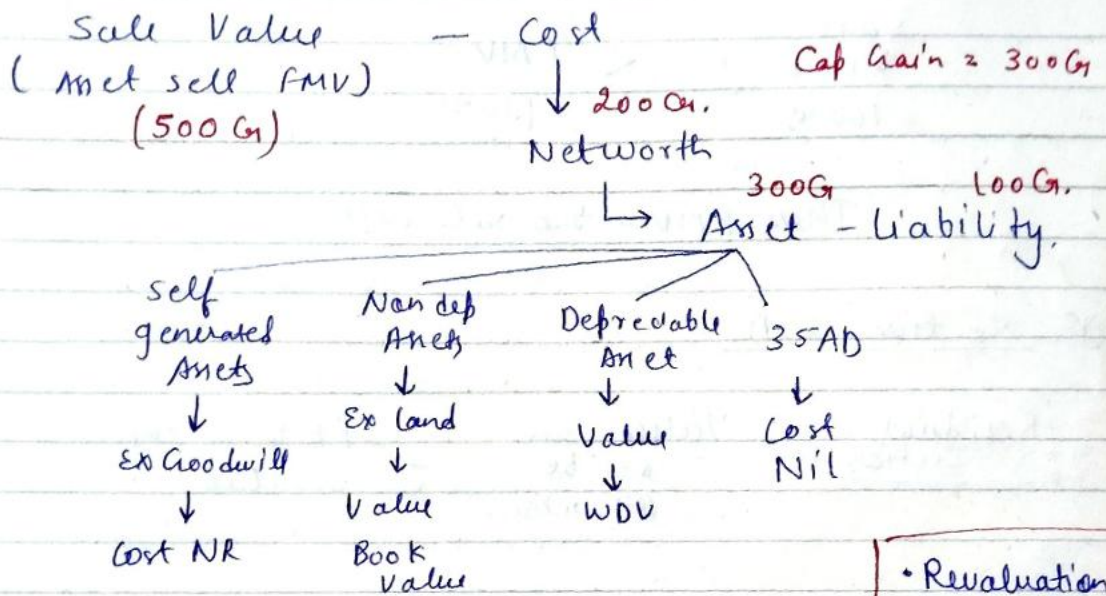 Sale Value — Cost
(Asset sell FMV)
Cap Gain = 300 Cr
(500 Cr)
↓ 200 Cr.
Networth
300 Cr 100 Cr.
↳ Asset - Liability.
Self generated Assets
↓
Ex Goodwill
↓
Cost NR
Non dep Assets
↓
Ex land
↓
Value
Book Value
Depreciable Asset
↓
Value
↓
WDV
35AD
↓
Cost
Nil
• Revaluation